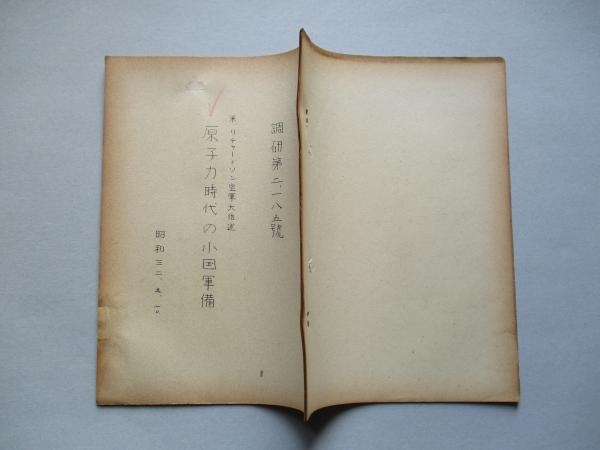 調研第二、一八五號
米 リチャードソン空軍大佐述
原子力時代の小国軍備
昭和三二、五、一〇